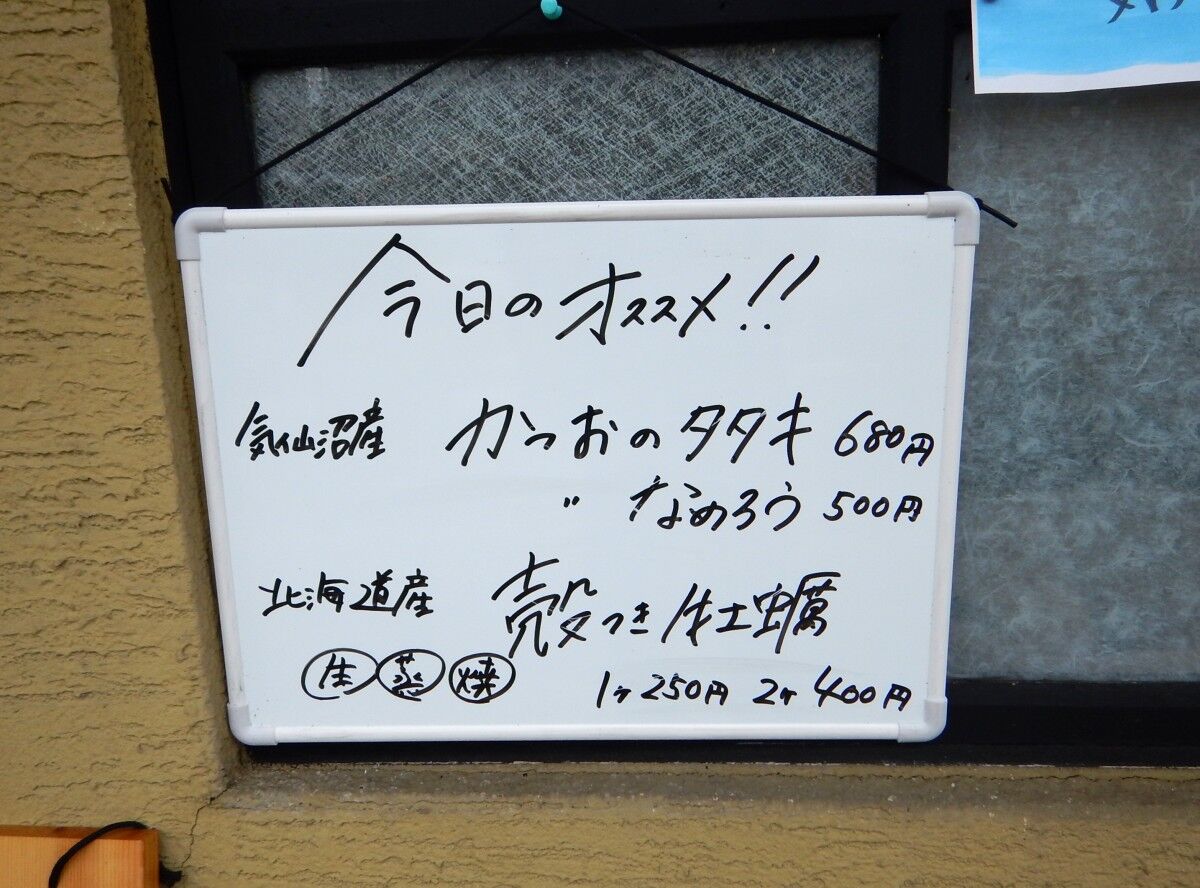 今日のオススメ!!
気仙沼産 かつおのタタキ 680円
〃 なめろう 500円
北海道産 殻つき牡蠣
生 蒸 焼 1ヶ250円 2ヶ400円